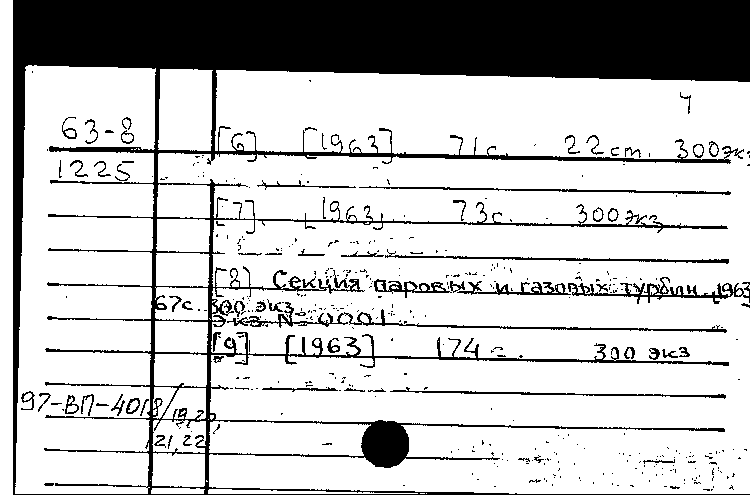 4
63-8 [6]. [1963]. 71с. 22cm. 300экз
1225
[7]. [1963] 73с. 300экз
[8] Секция паровых и газовых турбин. [1963
67с. 300 экз.
Экз. № 0001
[9] [1963] 174с. 300 экз
97-ВП-4018/19,20,
21,22